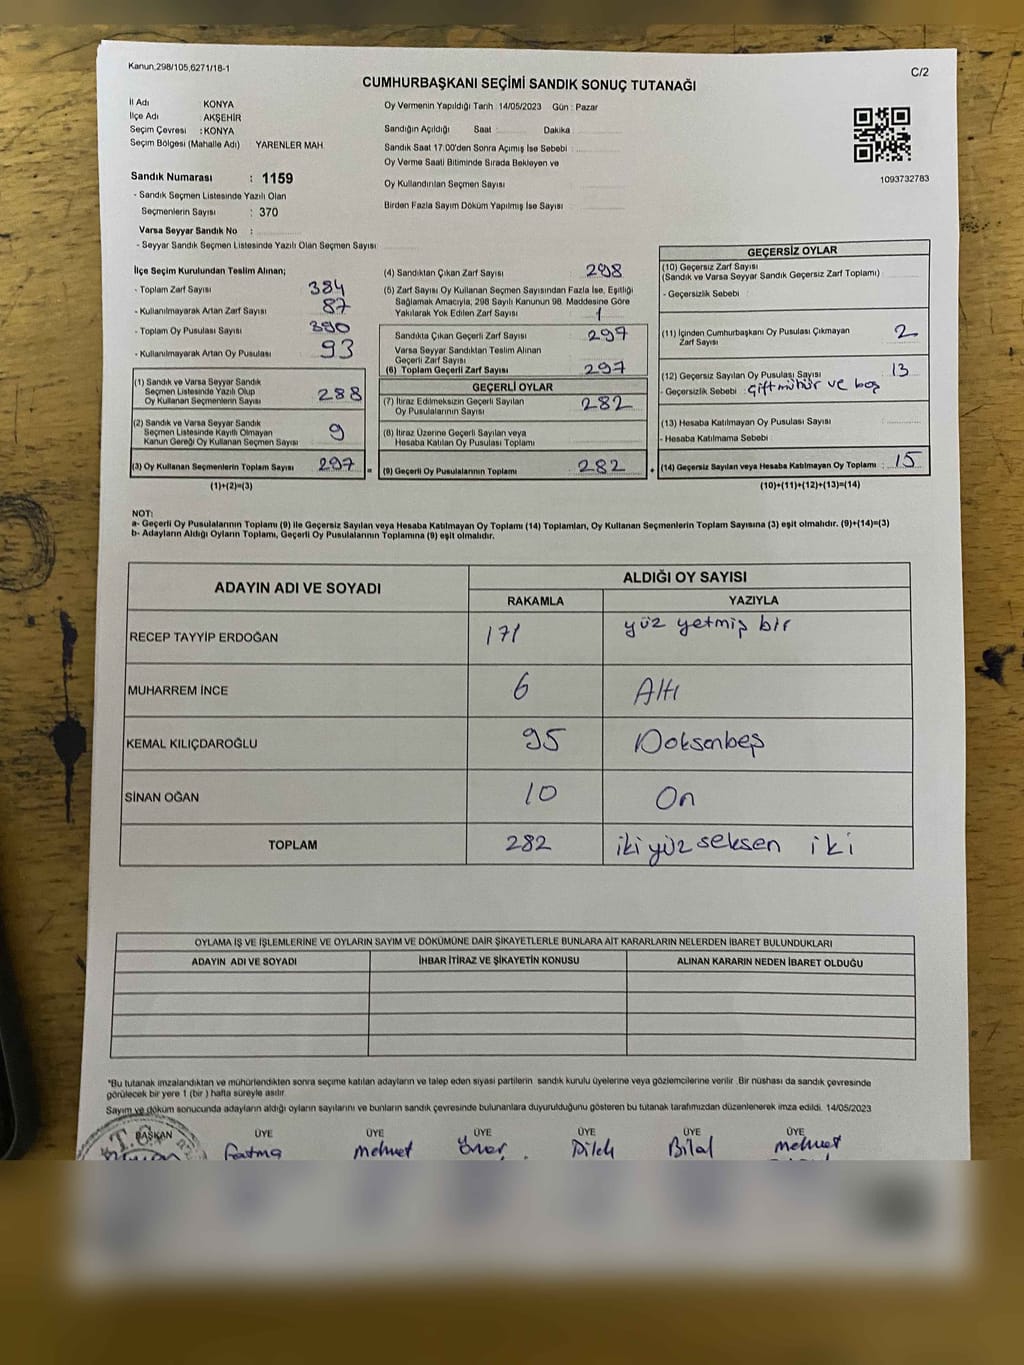 Kanun,298/105,6271/18-1
C/2
CUMHURBAŞKANI SEÇİMİ SANDIK SONUÇ TUTANAĞI
İl Adı : KONYA
İlçe Adı : AKŞEHİR
Seçim Çevresi : KONYA
Seçim Bölgesi (Mahalle Adı) YARENLER MAH
Oy Vermenin Yapıldığı Tarih : 14/05/2023 Gün : Pazar
Sandığın Açıldığı Saat : Dakika :
Sandık Saat 17:00'den Sonra Açımış İse Sebebi :
Oy Verme Saati Bitiminde Sırada Bekleyen ve
Oy Kullandırılan Seçmen Sayısı :
Birden Fazla Sayım Döküm Yapılmış İse Sayısı :
1093732783
Sandık Numarası : 1159
- Sandık Seçmen Listesinde Yazılı Olan
Seçmenlerin Sayısı : 370
Varsa Seyyar Sandık No :
- Seyyar Sandık Seçmen Listesinde Yazılı Olan Seçmen Sayısı:
İlçe Seçim Kurulundan Teslim Alınan;
- Toplam Zarf Sayısı : 384
- Kullanılmayarak Artan Zarf Sayısı : 87
- Toplam Oy Pusulası Sayısı : 390
- Kullanılmayarak Artan Oy Pusulası : 93
(1) Sandık ve Varsa Seyyar Sandık
Seçmen Listesinde Yazılı Olup
Oy Kullanan Seçmenlerin Sayısı : 288
(2) Sandık ve Varsa Seyyar Sandık
Seçmen Listesinde Kayıtlı Olmayan
Kanun Gereği Oy Kullanan Seçmen Sayısı : 9
(3) Oy Kullanan Seçmenlerin Toplam Sayısı : 297 =
(1)+(2)=(3)
(4) Sandıktan Çıkan Zarf Sayısı : 298
(5) Zarf Sayısı Oy Kullanan Seçmen Sayısından Fazla İse, Eşitliği
Sağlamak Amacıyla, 298 Sayılı Kanunun 98. Maddesine Göre
Yakılarak Yok Edilen Zarf Sayısı : 1
Sandıkta Çıkan Geçerli Zarf Sayısı : 297
Varsa Seyyar Sandıktan Teslim Alınan
Geçerli Zarf Sayısı :
(6) Toplam Geçerli Zarf Sayısı : 297
GEÇERLİ OYLAR
(7) İtiraz Edilmeksizin Geçerli Sayılan
Oy Pusulalarının Sayısı : 282
(8) İtiraz Üzerine Geçerli Sayılan veya
Hesaba Katılan Oy Pusulası Toplamı :
(9) Geçerli Oy Pusulalarının Toplamı : 282 +
GEÇERSİZ OYLAR
(10) Geçersiz Zarf Sayısı
(Sandık ve Varsa Seyyar Sandık Geçersiz Zarf Toplamı) :
- Geçersizlik Sebebi :
(11) İçinden Cumhurbaşkanı Oy Pusulası Çıkmayan
Zarf Sayısı : 2
(12) Geçersiz Sayılan Oy Pusulası Sayısı : 13
- Geçersizlik Sebebi : Çift mühür ve boş
(13) Hesaba Katılmayan Oy Pusulası Sayısı :
- Hesaba Katılmama Sebebi :
(14) Geçersiz Sayılan veya Hesaba Katılmayan Oy Toplamı : 15
(10)+(11)+(12)+(13)=(14)
NOT:
a- Geçerli Oy Pusulalarının Toplamı (9) ile Geçersiz Sayılan veya Hesaba Katılmayan Oy Toplamı (14) Toplamları, Oy Kullanan Seçmenlerin Toplam Sayısına (3) eşit olmalıdır. (9)+(14)=(3)
b- Adayların Aldığı Oyların Toplamı, Geçerli Oy Pusulalarının Toplamına (9) eşit olmalıdır.
ADAYIN ADI VE SOYADI
ALDIĞI OY SAYISI
RAKAMLA YAZIYLA
RECEP TAYYİP ERDOĞAN 171 yüz yetmiş bir
MUHARREM İNCE 6 Altı
KEMAL KILIÇDAROĞLU 95 Doksanbeş
SİNAN OĞAN 10 On
TOPLAM 282 iki yüz seksen iki
OYLAMA İŞ VE İŞLEMLERİNE VE OYLARIN SAYIM VE DÖKÜMÜNE DAİR ŞİKAYETLERLE BUNLARA AİT KARARLARIN NELERDEN İBARET BULUNDUKLARI
ADAYIN ADI VE SOYADI İHBAR İTİRAZ VE ŞİKAYETİN KONUSU ALINAN KARARIN NEDEN İBARET OLDUĞU
"Bu tutanak imzalandıktan ve mühürlendikten sonra seçime katılan adayların ve talep eden siyasi partilerin sandık kurulu üyelerine veya gözlemcilerine verilir. Bir nüshası da sandık çevresinde
görülecek bir yere 1 (bir) hafta süreyle asılır.
Sayım ve döküm sonucunda adayların aldığı oyların sayılarını ve bunların sandık çevresinde bulunanlara duyurulduğunu gösteren bu tutanak tarafımızdan düzenlenerek imza edildi. 14/05/2023
BAŞKAN ÜYE ÜYE ÜYE ÜYE ÜYE ÜYE
T.C. Fatma mehmet Dilek Bilal mehmet